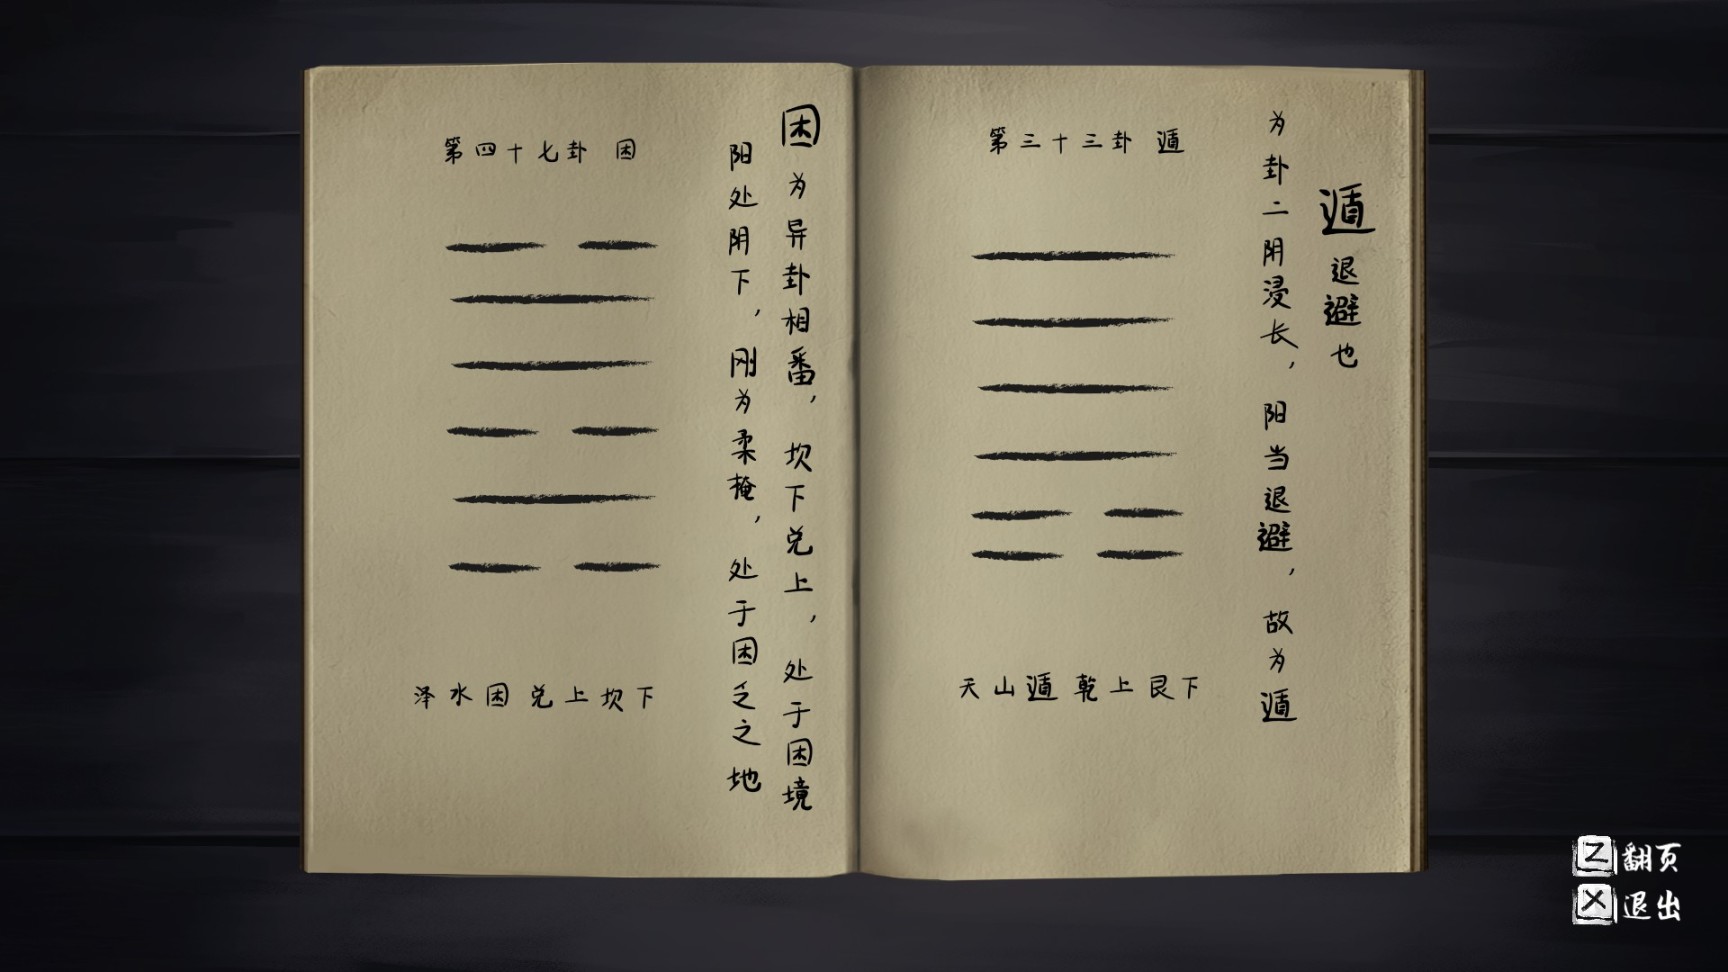 第三十三卦 遁
遁退避也
为卦二阴浸长，阳当退避，故为遁
天山遁 乾上艮下
第四十七卦 困
困为异卦相番，坎下兑上，处于困境
阳处阴下，刚为柔掩，处于困乏之地
泽水困 兑上坎下
Z翻页
X退出